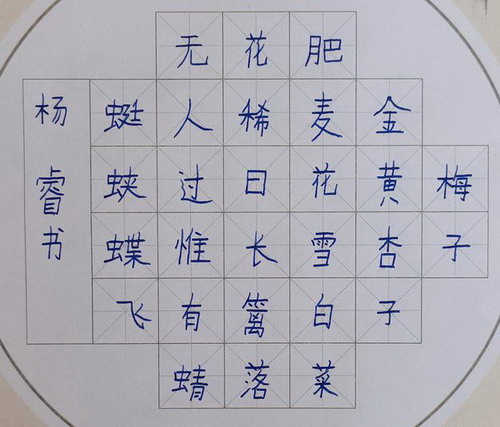 梅子
金黄杏子
肥麦花雪白菜
花稀日长篱落
无人过惟有蜻
蜓蛱蝶飞
杨睿书